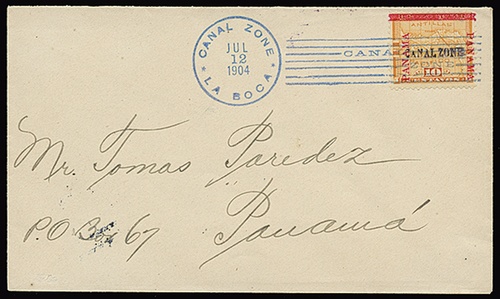 CANAL ZONE
JUL
12
1904
LA BOCA
CANA
PANAMA
CANAL ZONE
PANAMA
10
Mr. Tomas Paredez
P.O Box 67
Panamá